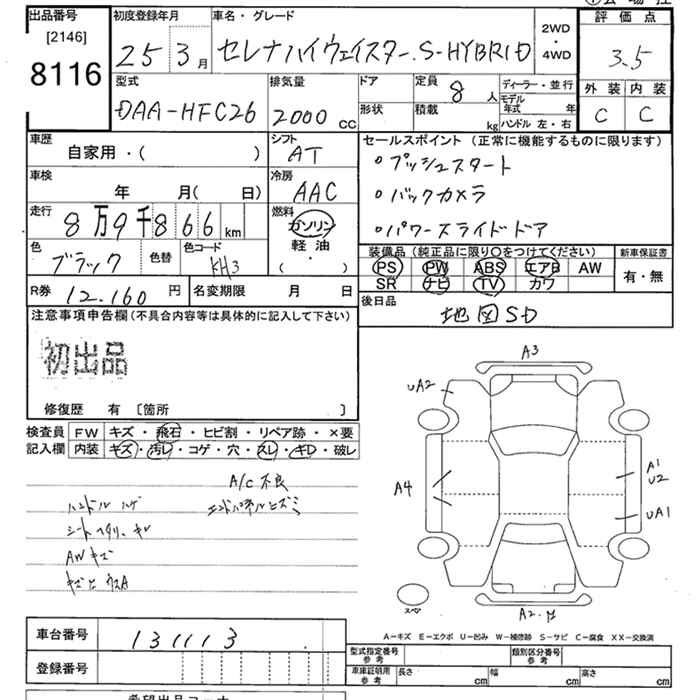 出品番号 初度登録年月 車名・グレード
[2146]
8116
25 3月 セレナハイウェイスター.S-HYBRID
2WD・4WD
評価点
3.5
型式 排気量 ドア 定員 ディーラー・並行 外装 内装
DAA-HFC26 2000cc 8人
形状 積載 kg
モデル年式 年
ハンドル 左・右
C C
車歴 シフト セールスポイント(正常に機能するものに限ります)
自家用・( ) AT
・プッシュスタート
車検 冷房
年 月( 日) AAC
・バックカメラ
走行 燃料
8万9千866km ガソリン
・パワースライドドア
軽油・( )
色 色替 色コード
ブラック KH3
装備品(純正品に限り○をつけてください) 新車保証書
PS PW ABS エアB AW 有・無
SR ナビ TV カワ
R券 12.160円 名変期限 月 日
後日品
地図SD
注意事項申告欄(不具合内容等は具体的に記入して下さい)
初出品
修復歴 有 〔箇所 〕
検査員 FW キズ・飛石・ヒビ割・リペア跡・×要
記入欄 内装 キズ・汚レ・コゲ・穴・スレ・キD・破レ
A/C不良
ハンドルハゲ エンドパネルヒズミ
AWキズ
A3
UA2
A4
A1
U2
UA1
スペア
A2
A-キズ E-エクボ U-凹み W-補修跡 S-サビ C-腐食 XX-交換済
車台番号 131113
登録番号
型式指定番号 参考 類別区分番号 参考
車庫証明用 参考 長さ cm 幅 cm 高さ cm